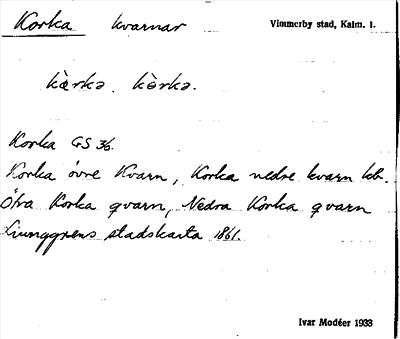 Korka kvarnar Vimmerby stad, Kalm. l.
kærkə. kèrkə.
Korka GS 36.
Korka övre Kvarn, Korka nedre kvarn kb.
Öfra Korka qvarn, Nedra Korka qvarn
Ljunggrens stadskarta 1861.
Ivar Modéer 1933